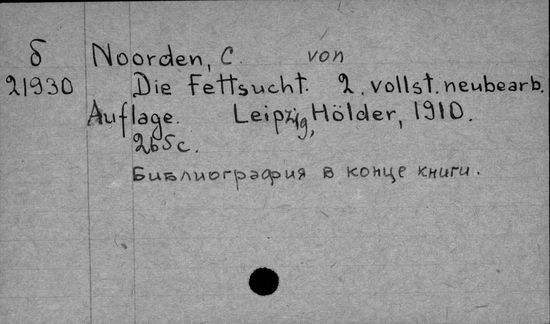 б Noorden, C. von
21930 Die Fettsucht. 2. vollst. neubearb.
Auflage. Leipzig, Hölder, 1910.
265 c.
Библиография в конце книги.